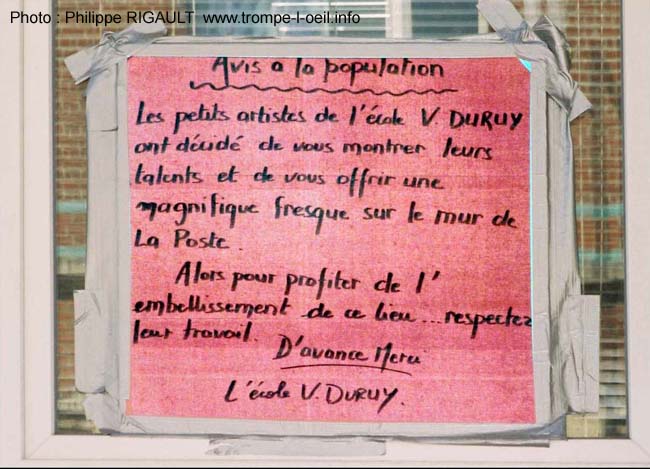 Photo : Philippe RIGAULT www.trompe-l-oeil.info
Avis a la population
Les petits artistes de l'école V. DURUY
ont décidé de vous montrer leurs
talents et de vous offrir une
magnifique fresque sur le mur de
La Poste.
Alors pour profiter de l'
embellissement de ce lieu... respectez
leur travail.
D'avance Merci
L'école V. DURUY.